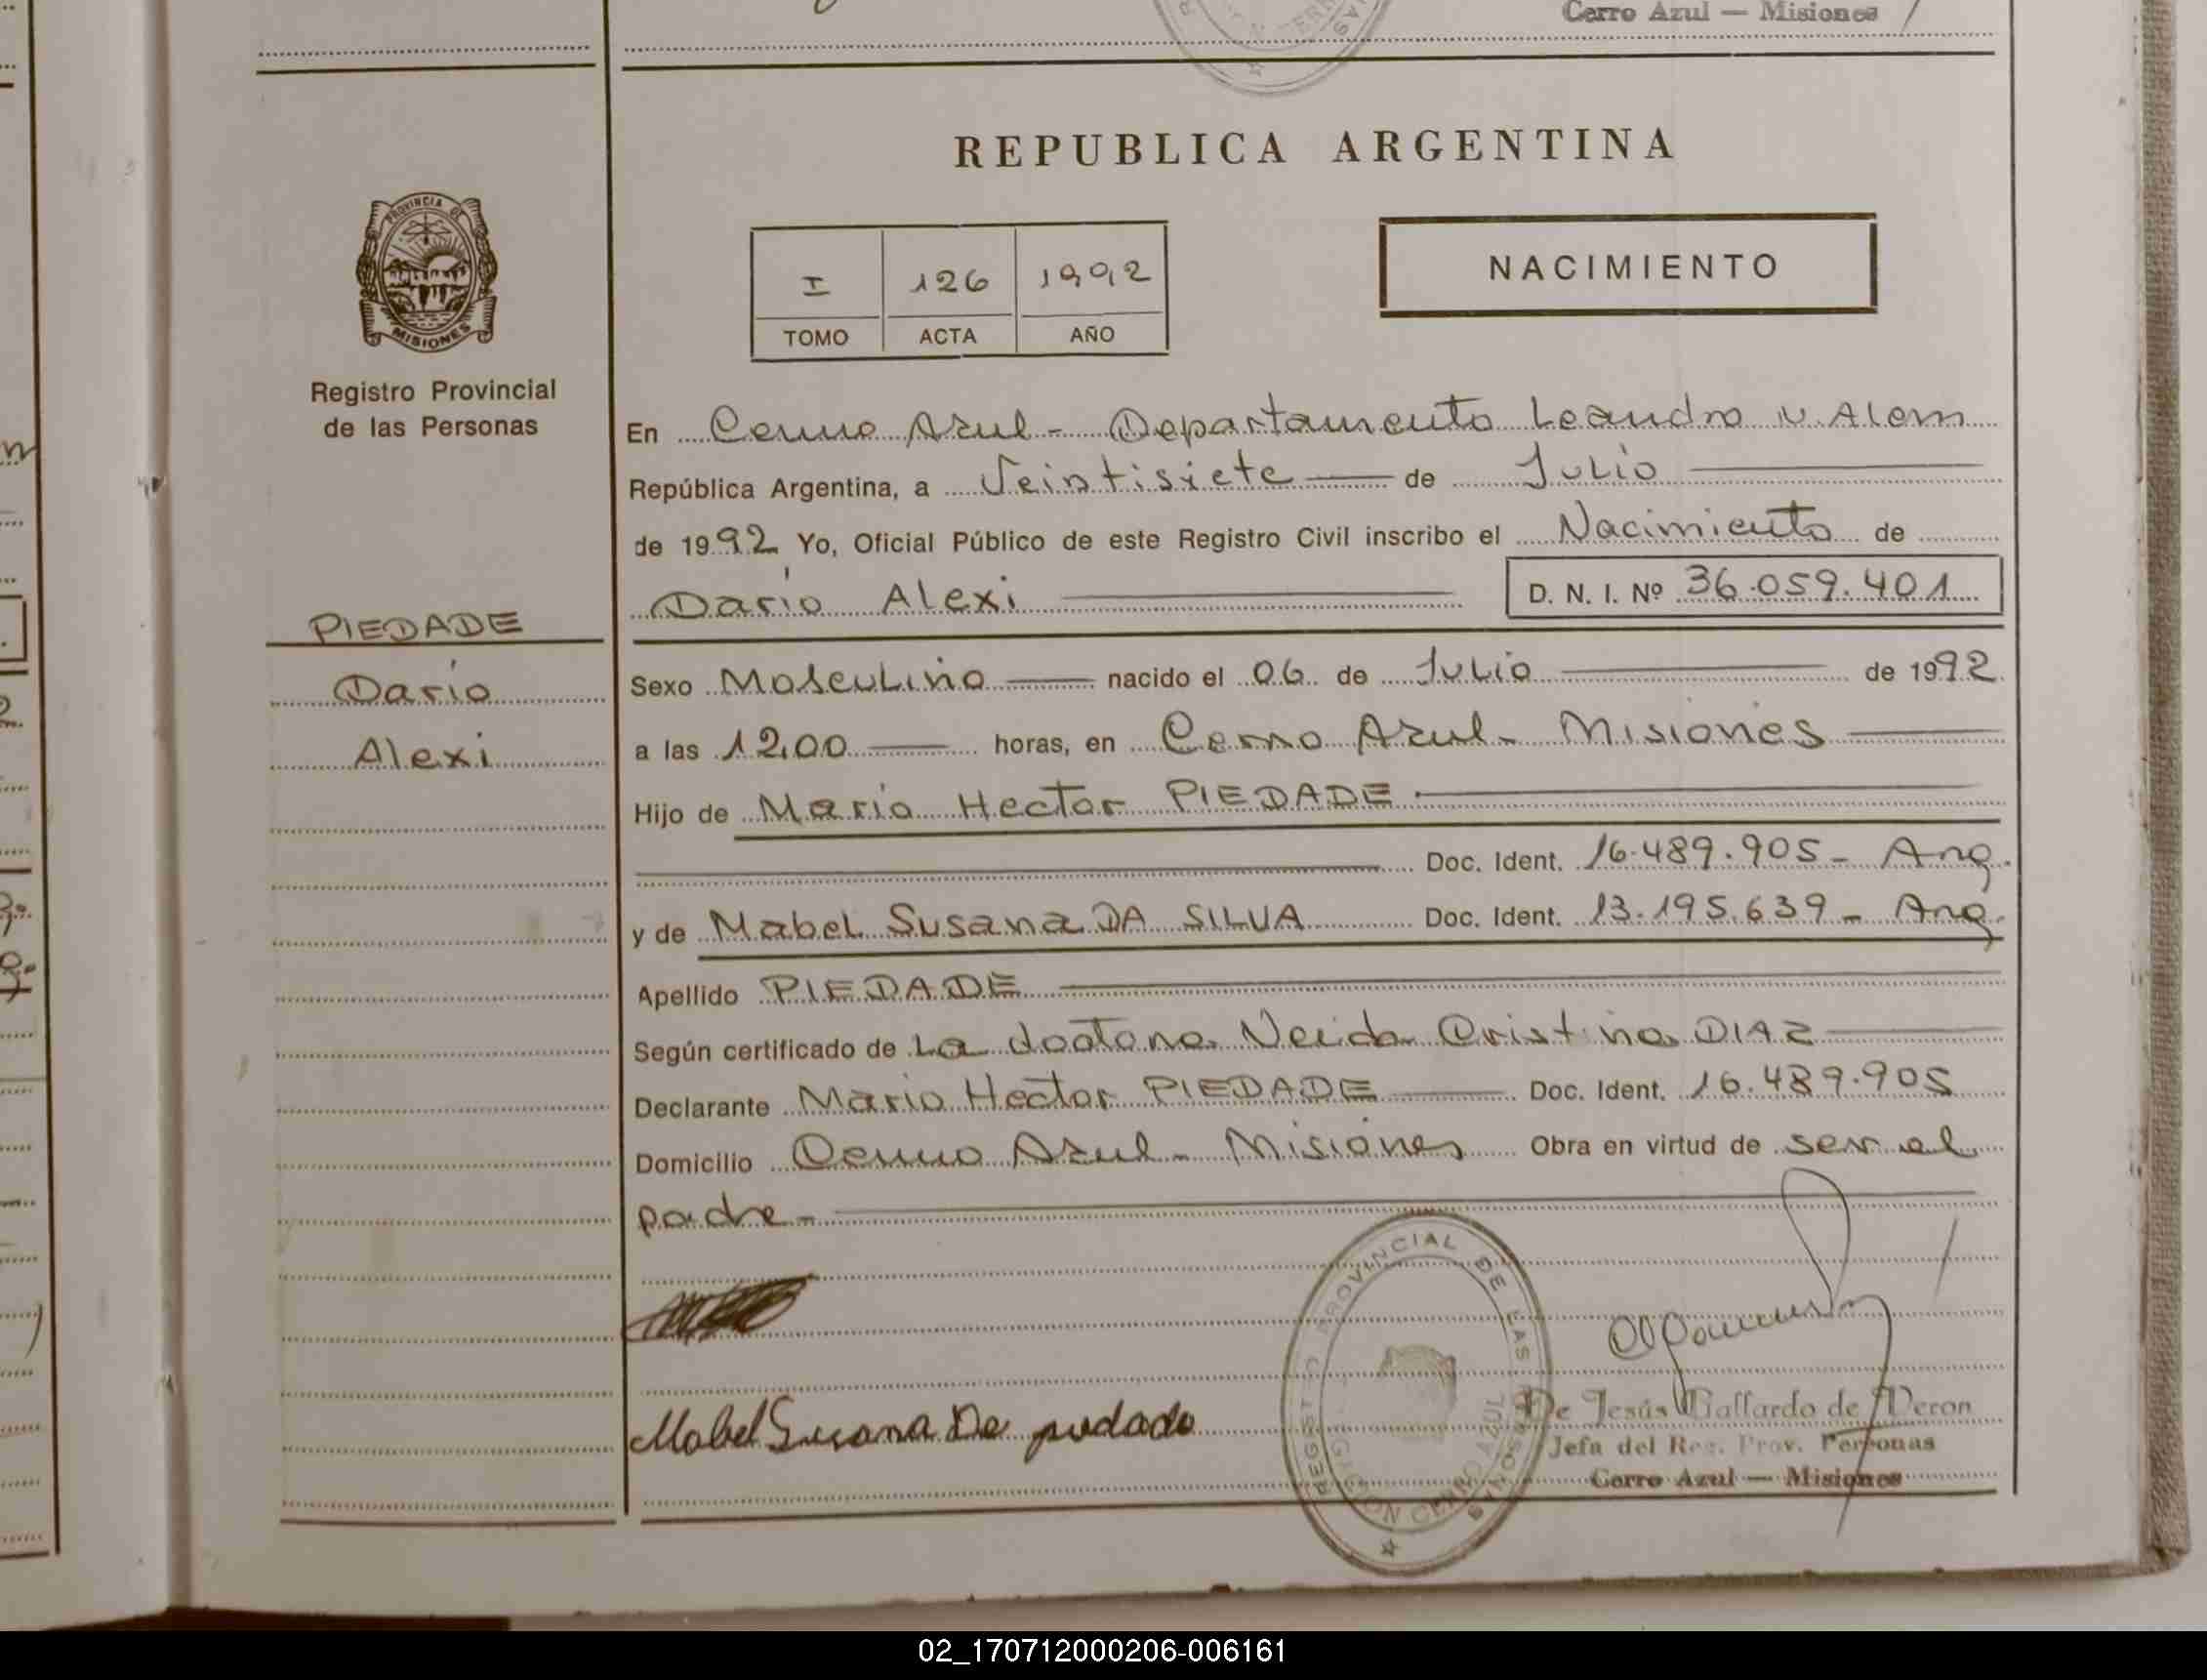 Cerro Azul — Misiones
REPUBLICA ARGENTINA
PROVINCIA DE
MISIONES
Registro Provincial
de las Personas
I 126 1992
TOMO ACTA AÑO
NACIMIENTO
En Cerro Azul - Departamento Leandro N. Alem
República Argentina, a Veintisiete de Julio
de 1992 Yo, Oficial Público de este Registro Civil inscribo el Nacimiento de
Darío Alexi
D. N. I. Nº 36.059.401
PIEDADE
Darío
Alexi
Sexo Masculino nacido el 06 de Julio de 1992
a las 12,00 horas, en Cerro Azul - Misiones
Hijo de Mario Hector PIEDADE
Doc. Ident. 16.489.905 - Arg.
y de Mabel Susana DA SILVA Doc. Ident. 13.195.639 - Arg.
Apellido PIEDADE
Según certificado de La doctora Cristina DIAZ
Declarante Mario Hector PIEDADE Doc. Ident. 16.489.905
Domicilio Cerro Azul - Misiones Obra en virtud de ser el
padre -
REGISTRO PROVINCIAL DE LAS PERSONAS
CERRO AZUL
Mabel Susana De
De Jesús Gallardo de Veron
Jefa del Reg. Prov. Personas
Cerro Azul — Misiones
02_170712000206-006161